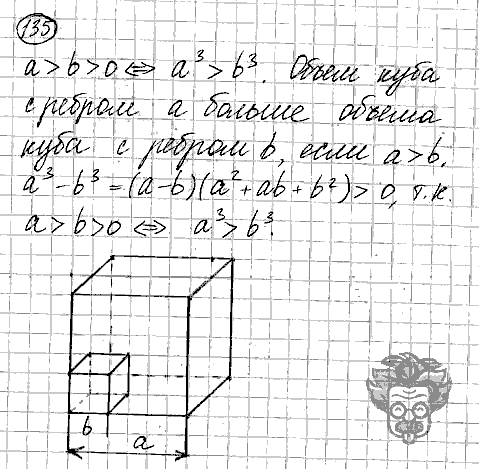 135
a > b > 0 ⇔ a³ > b³. Объем куба
с ребром a больше объема
куба с ребром b, если a > b.
a³ - b³ = (a - b)(a² + ab + b²) > 0, т.к.
a > b > 0 ⇔ a³ > b³.
b
a